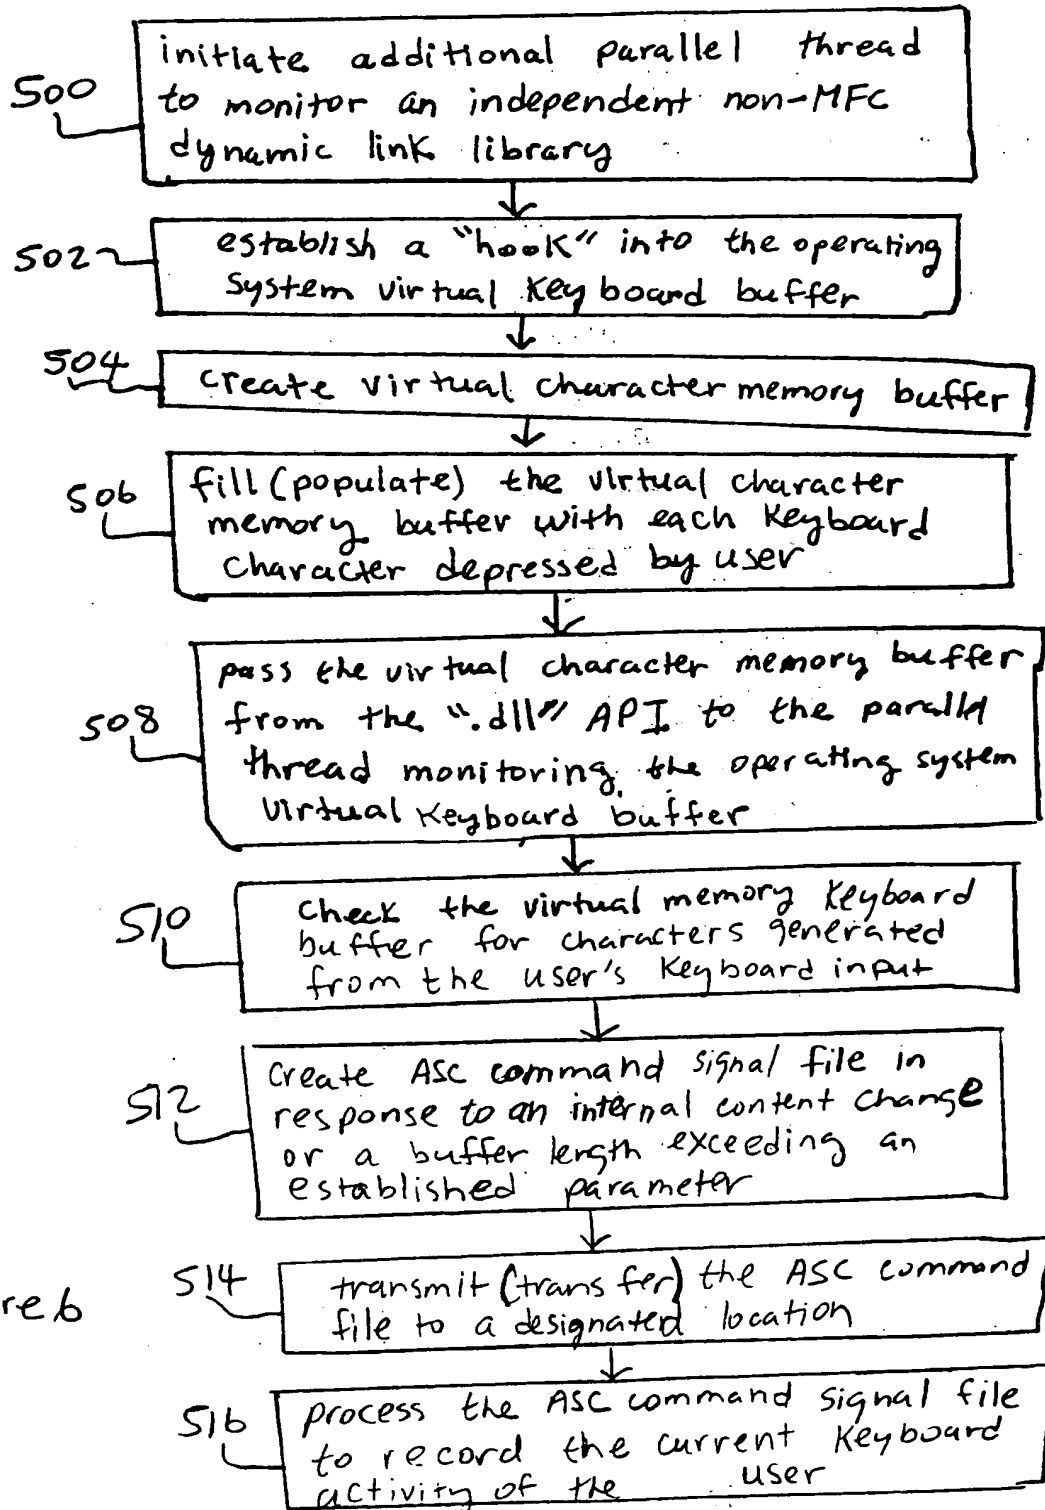 500
initiate additional parallel thread
to monitor an independent non-MFC
dynamic link library
502
establish a "hook" into the operating
system virtual Keyboard buffer
504
create virtual character memory buffer
506
fill (populate) the virtual character
memory buffer with each Keyboard
character depressed by user
508
pass the virtual character memory buffer
from the ".dll" API to the parallel
thread monitoring the operating system
virtual Keyboard buffer
510
check the virtual memory Keyboard
buffer for characters generated
from the user's Keyboard input
512
Create ASC command signal file in
response to an internal content change
or a buffer length exceeding an
established parameter
514
transmit (transfer) the ASC command
file to a designated location
re 6
516
process the ASC command signal file
to record the current Keyboard
activity of the user